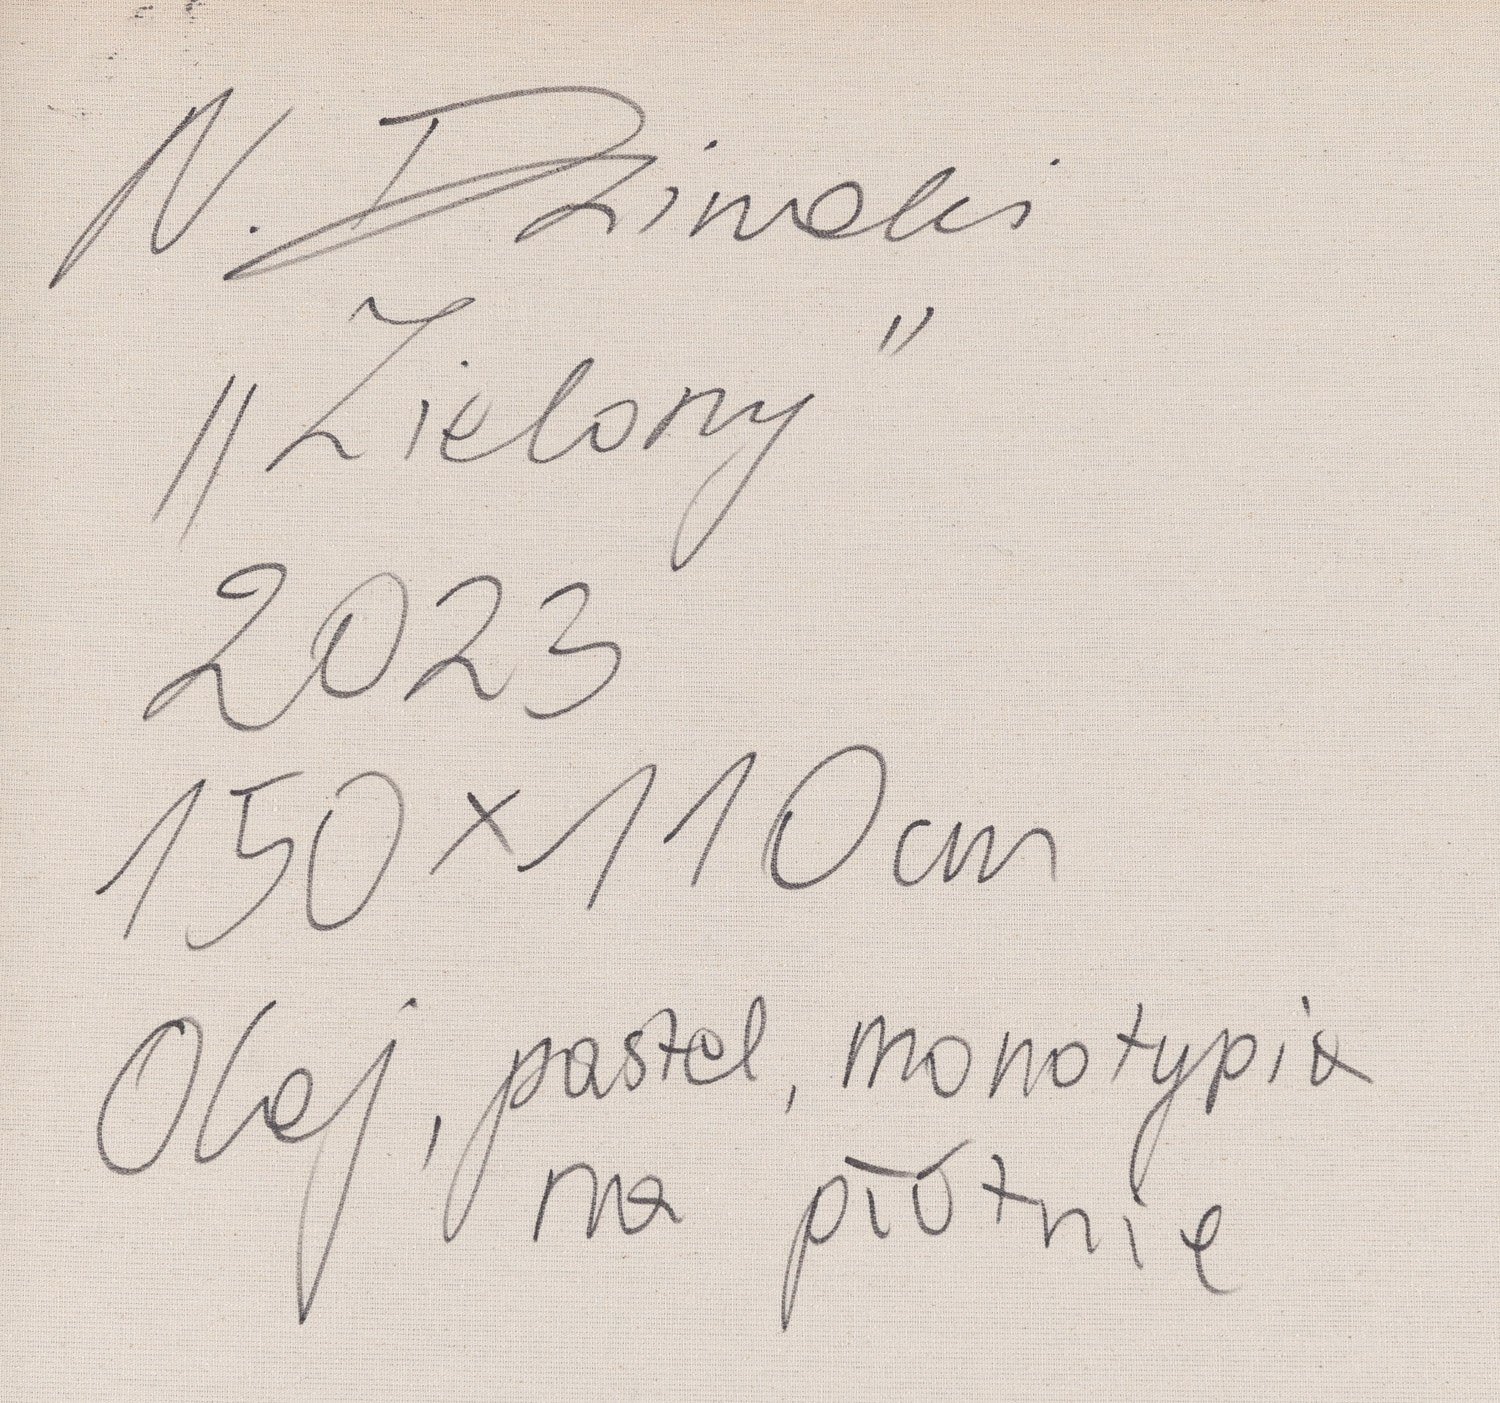 N.
„Zielony”
2023
150 x 110 cm
Olej, pastel, monotypia
na płótnie